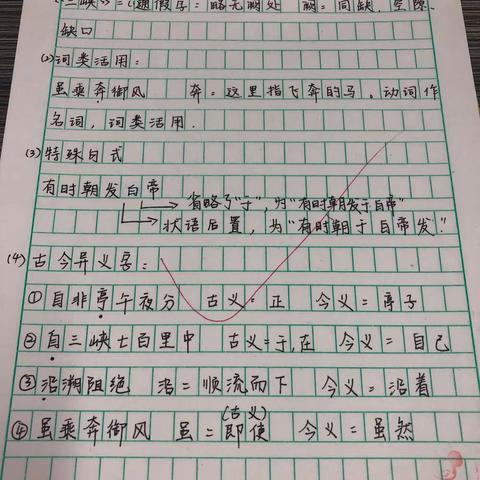 《三峡》=(1)通假字:略无阙处 阙:同缺,空隙、
缺口
(2)词类活用:
虽乘奔御风 奔:这里指飞奔的马,动词作
名词,词类活用.
(3)特殊句式
有时朝发白帝
省略了"于",为"有时朝发于白帝"
状语后置,为"有时朝于白帝发".
(4)古今异义字:
①自非亭午夜分 古义=正 今义=亭子
②自三峡七百里中 古义=于,在 今义=自己
③沿溯阻绝 沿=顺流而下 今义=沿着
(古义)
④虽乘奔御风 虽=即使 今义=虽然